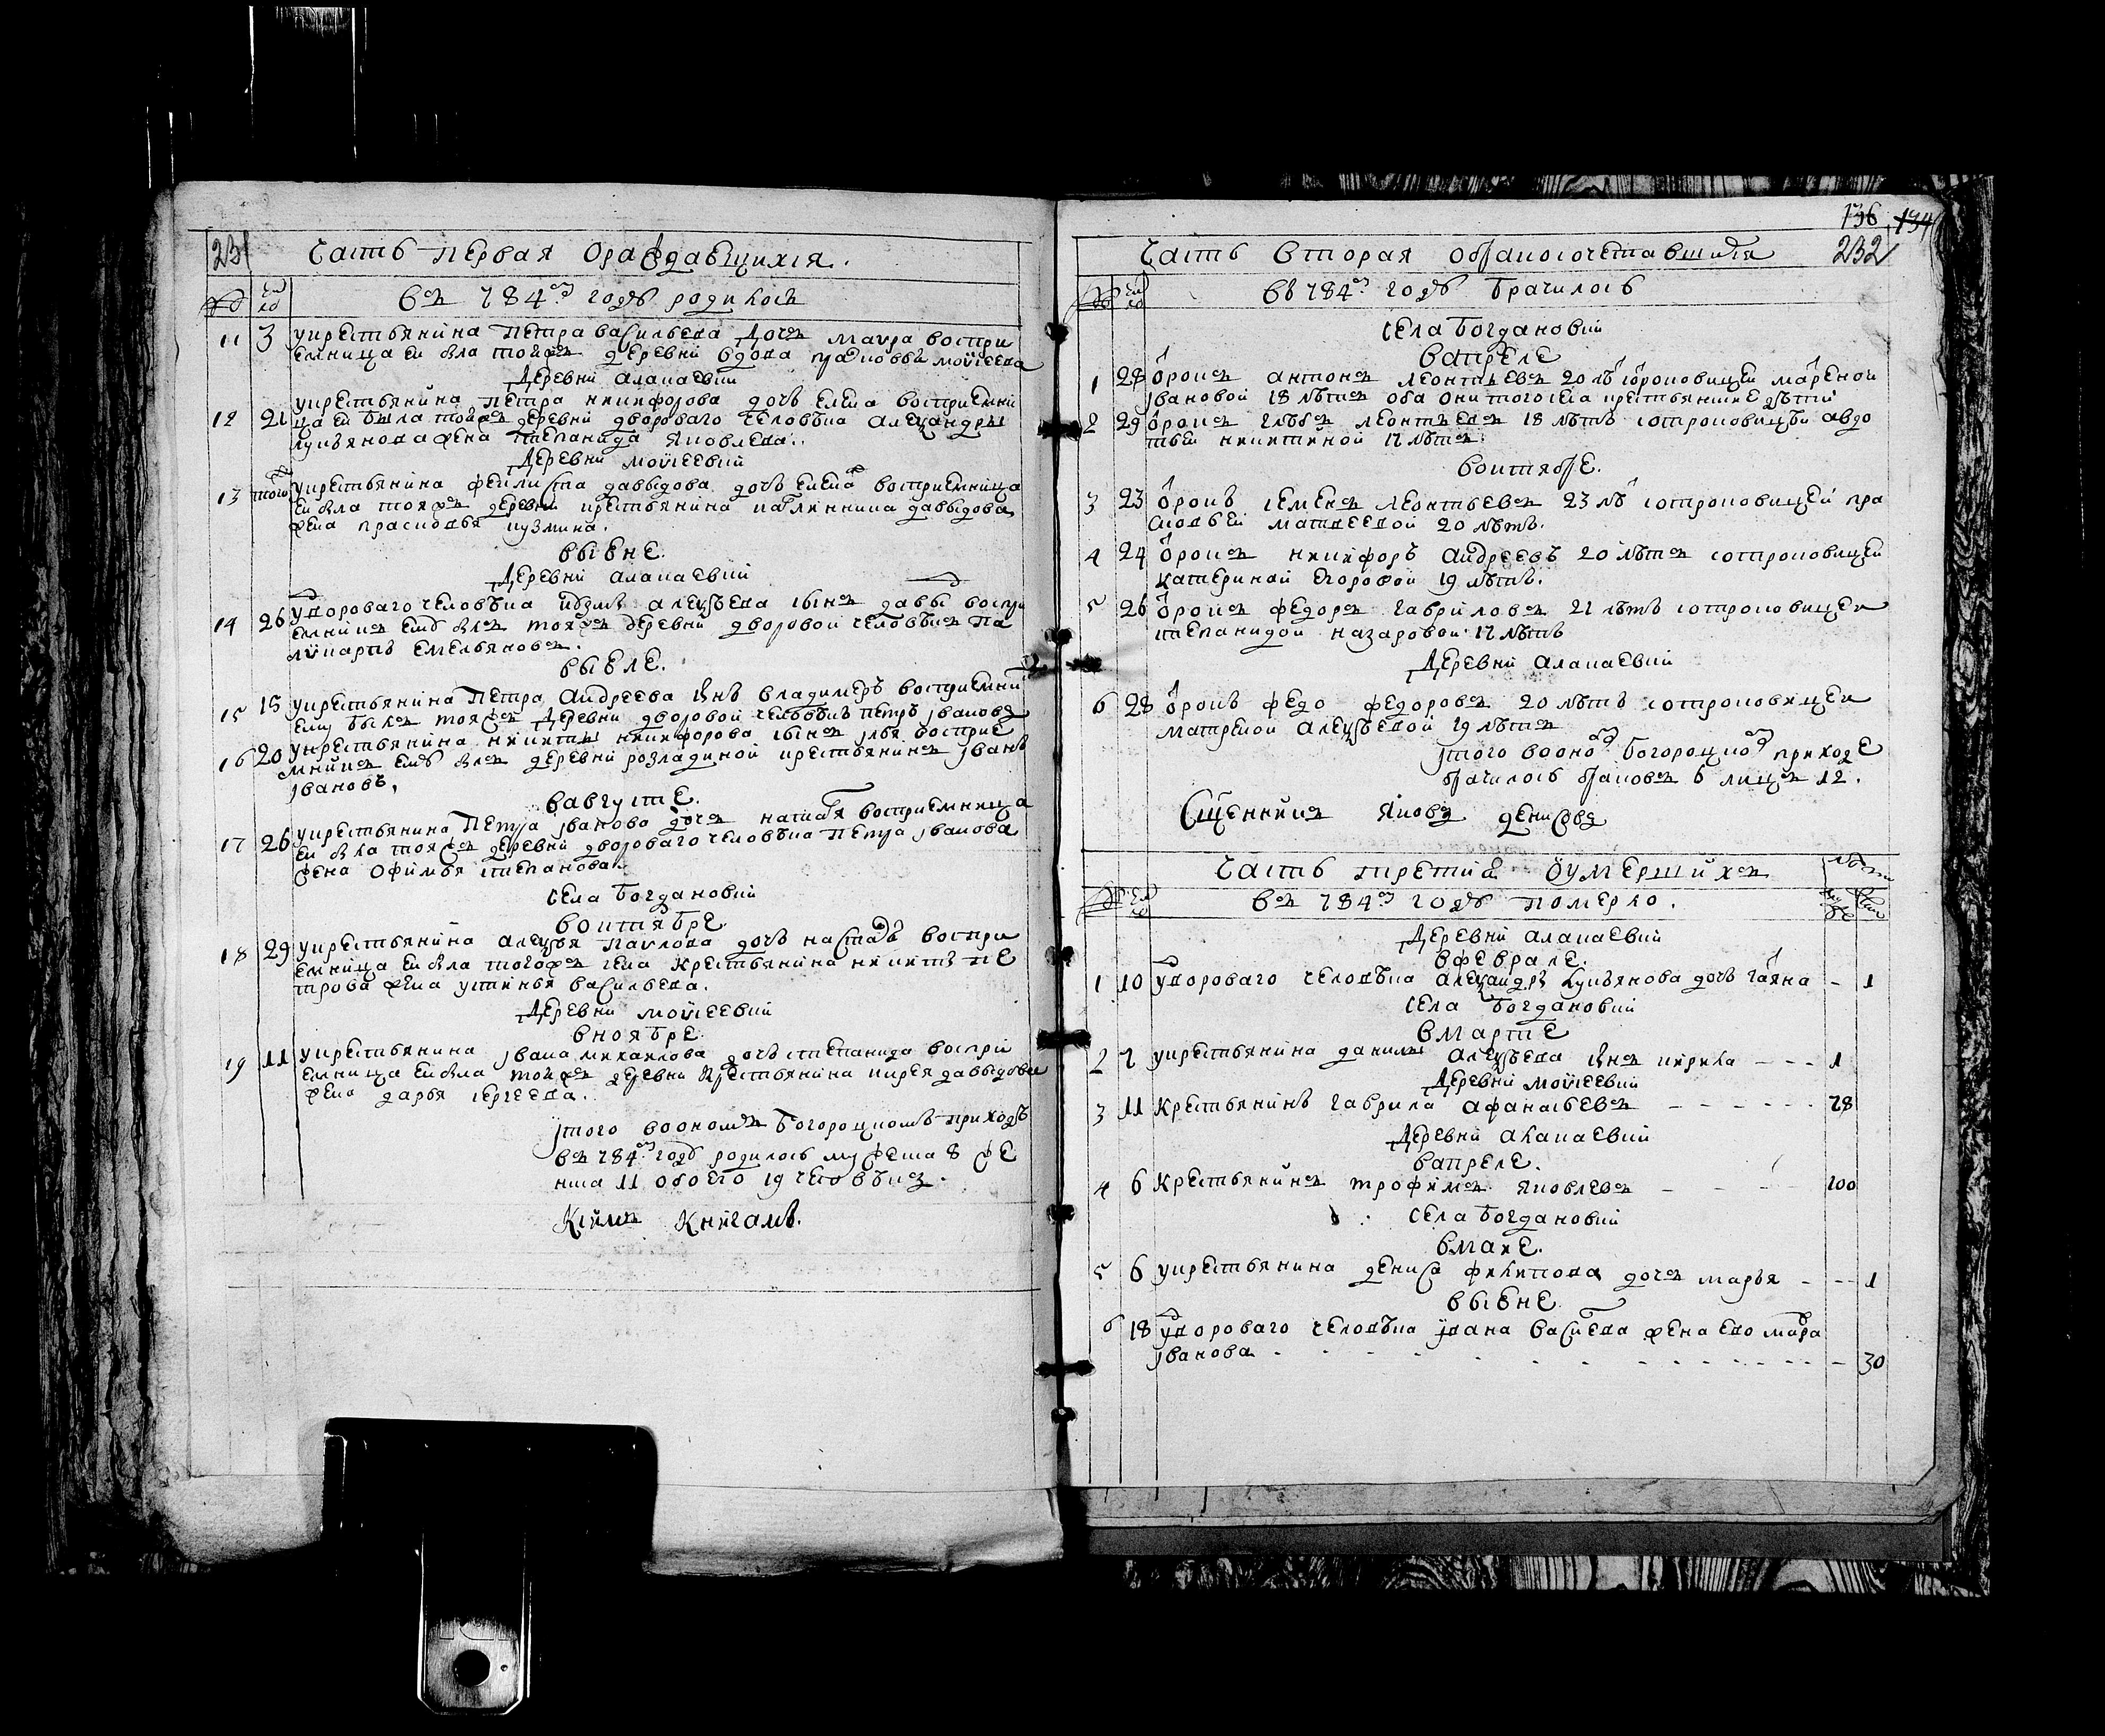 231
Часть первая о раждающихся.
въ 784м годѣ родилось
11 3 У крестьянина Петра Васильева дочь Мавра воспри
емница ей была тойжъ деревни вдова Прасковья Моисеева
Деревни Алакаевки
У крестьянина Петра Никифорова дочь Елена восприемни
12 21 ца ей была тойжъ деревни двороваго человѣка Александры
Лукьянова жена Степанида Яковлева.
Деревни Моисеевки
13 того У крестьянина Феилиста Давыдова дочь Елена восприемница
ей была тояжъ деревни крестьянина Давыдова
жена Прасковья Кузмина.
В Июне.
Деревни Алакаевки
14 26 У двороваго человѣка Кузмы Алексѣева сынъ Давыд воспри
емникъ ему былъ тояжъ деревни дворовой человѣкъ По
ликарпъ Емельяновъ.
В Июле.
15 15 У крестьянина Петра Андреева сынъ Владимеръ восприемник
ему былъ тояжъ деревни дворовой человѣкъ Петръ Ивановъ
16 20 У крестьянина Никиты Никифорова сынъ Илья восприе
мникъ ему былъ деревни крестьянинъ Иванъ
Ивановъ.
В августе.
17 26 У крестьянина Петра Иванова дочь Наталя восприемница
ей была тояжъ деревни двороваго человѣка Петра Иванова
жена Офимья Степанова.
села Богдановки
В октябре
18 29 У крестьянина Алексея Павлова дочь Настасья воспри
емница ей была тогожъ села крестьянина Никиты Пе
трова жена Устинья Васильева.
Деревни Моисеевки
В ноябре
19 11 У крестьянина Ивана Михаилова дочь Степанида воспри
емница ей была тойжъ деревни крестьянина Кирея Давыдова
жена Дарья Сергеева.
Итого в ономъ Богороцкомъ приходѣ
въ 784м годѣ родилось мужеска 8 же
нска 11 обоего 19 человѣкъ.
К симъ книгамъ.
136 134
232
Часть вторая о бракосочетавшихся
въ 784м годѣ брачилось
села Богдановки
В апреле
1 28 Отрокъ Антонъ Леонтьевъ 20 лѣтъ с отроковицей Мареной
Ивановой 18 лѣтъ оба они того села крестьянские дѣти
2 29 Отрокъ Глѣбъ Леонтьевъ 18 лѣтъ с отроковицей Авдо
тьей Никитиной 17 лѣтъ.
В октябре.
3 23 Отрокъ Семенъ Леонтьевъ 23 лѣтъ с отроковицей Пра
сковьей Матвеевой 20 лѣтъ.
4 24 Отрокъ Никифоръ Андреевъ 20 лѣтъ с отроковицей
Катериной Егоровой 19 лѣтъ.
5 26 Отрокъ Федоръ Гавриловъ 21 лѣтъ с отроковицей
Степанидой Назаровой 17 лѣтъ
Деревни Алакаевки
6 28 Отрокъ Федо Федоровъ 20 лѣтъ с отроковицей
Матреной Алексѣевой 19 лѣтъ
Итого в ономъ Богороцкомъ приходе
брачилось браковъ 6 лицъ 12.
Сщенникъ Яковъ Денисовъ
Часть третия о умершихъ лѣта
въ 784м годѣ померло.
Деревни Алакаевки
В феврале.
1 10 У двороваго человѣка Александръ Лукьянова дочь Таяна – 1
села Богдановки
В марте
2 7 У крестьянина Данилы Алексѣева сынъ Кирила – – – 1
Деревни Моисеевки
3 11 Крестьянинъ Гаврила Афанасьевъ – – – – – – 78
Деревни Алакаевки
В апреле.
4 6 Крестьянинъ Трофимъ Яковлевъ – – – 100
села Богдановки
В мае.
5 6 У крестьянина Дениса Филипова дочь Марья – – – 1
В Июне
6 18 У двороваго человѣка Ивана Васильева жена ево Мавра
Иванова – – – – – – – – – 30